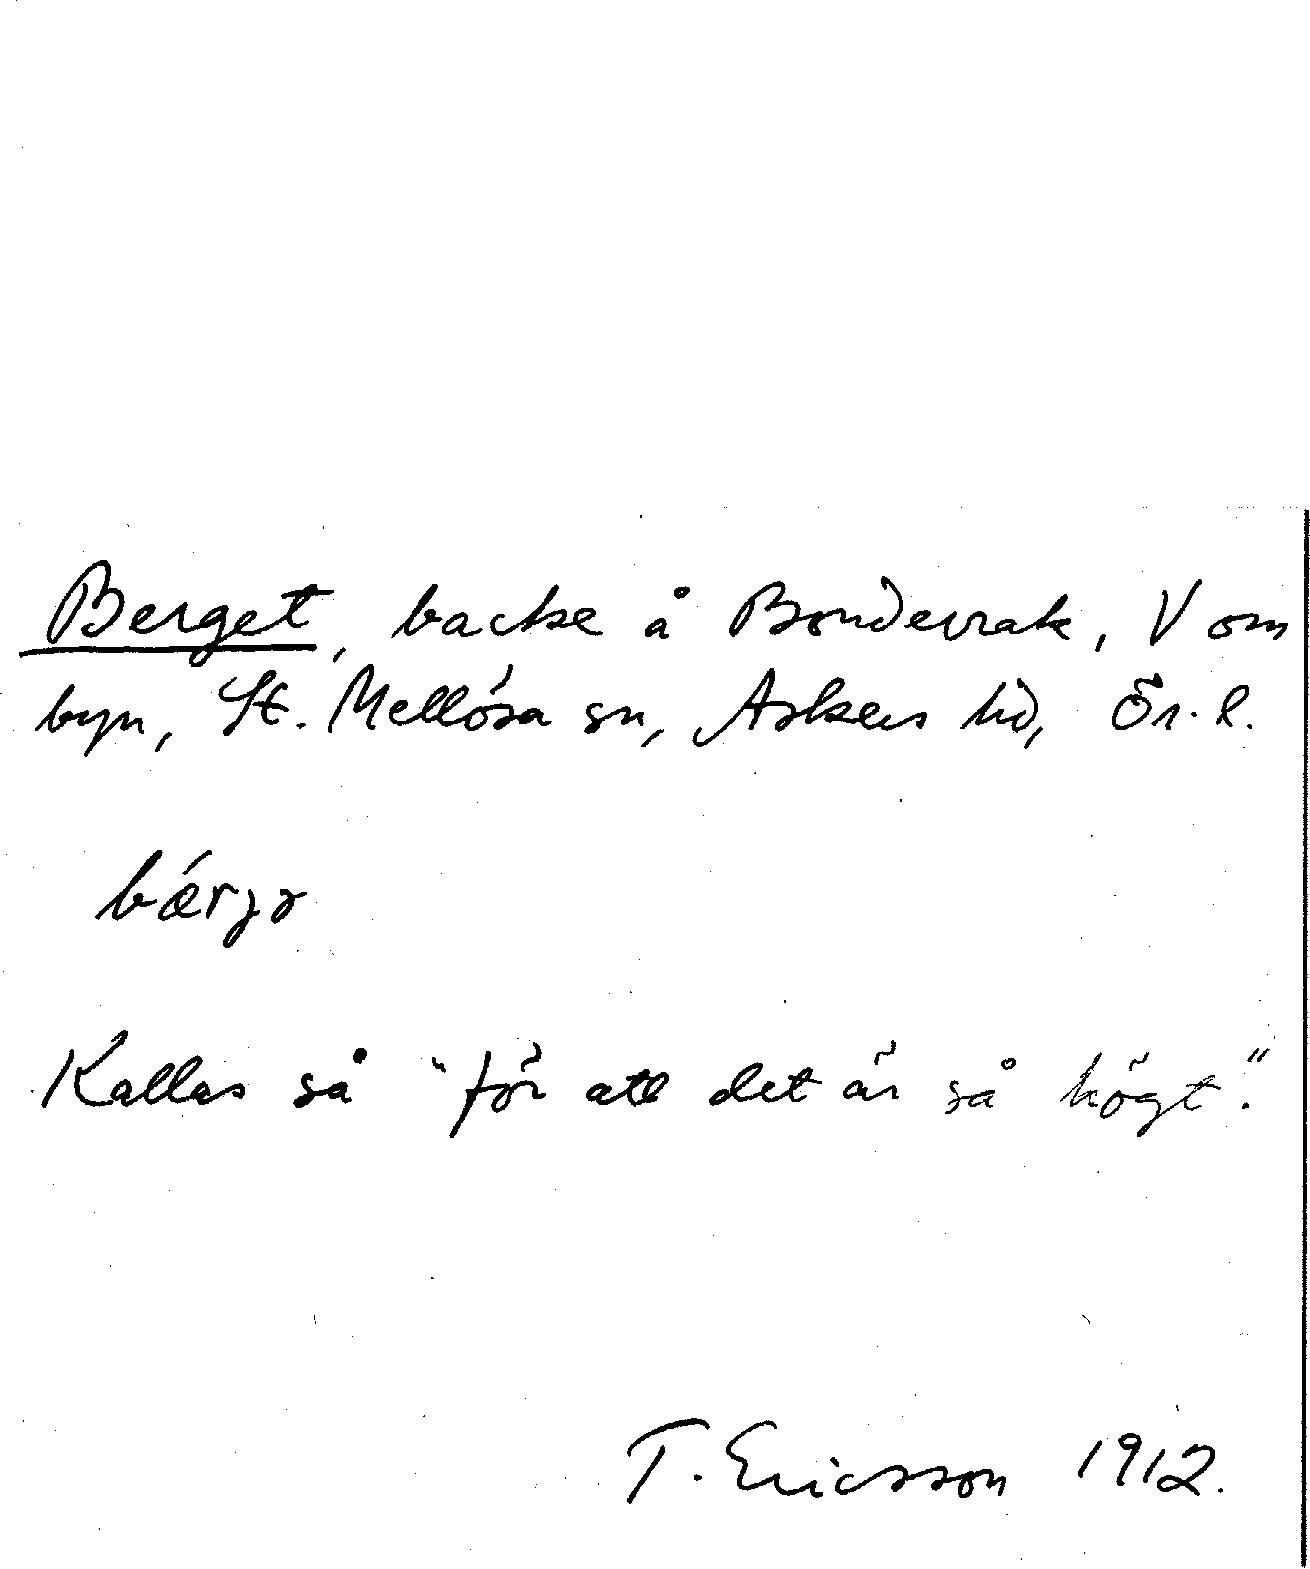 Berget, backe å Bondevrak, V om
byn, St. Mellösa sn, Askers hd, Ör. l.
bǽrjə
Kallas så "för att det är så högt".
T. Ericsson 1912.